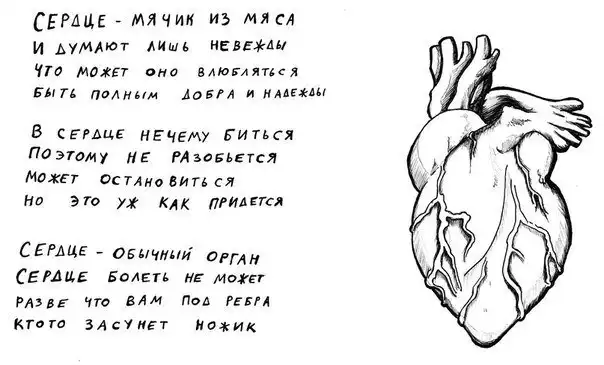 СЕРДЦЕ - МЯЧИК ИЗ МЯСА
И ДУМАЮТ ЛИШЬ НЕВЕЖДЫ
ЧТО МОЖЕТ ОНО ВЛЮБЛЯТЬСЯ
БЫТЬ ПОЛНЫМ ДОБРА И НАДЕЖДЫ
В СЕРДЦЕ НЕЧЕМУ БИТЬСЯ
ПОЭТОМУ НЕ РАЗОБЬЕТСЯ
МОЖЕТ ОСТАНОВИТЬСЯ
НО ЭТО УЖ КАК ПРИДЕТСЯ
СЕРДЦЕ - ОБЫЧНЫЙ ОРГАН
СЕРДЦЕ БОЛЕТЬ НЕ МОЖЕТ
РАЗВЕ ЧТО ВАМ ПОД РЕБРА
КТОТО ЗАСУНЕТ НОЖИК